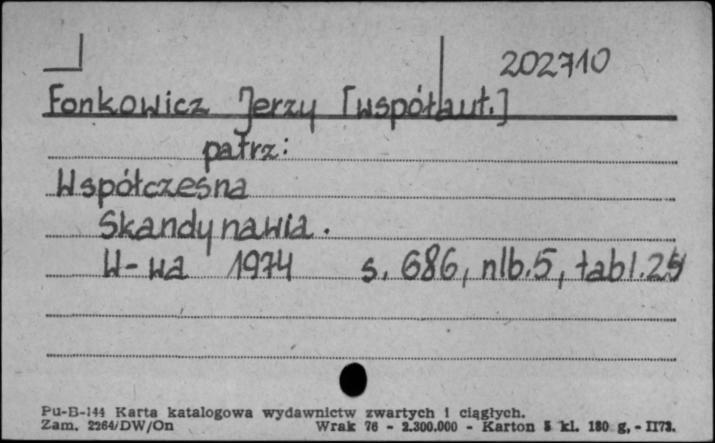 202710
Fonkowicz Jerzy [współaut.]
patrz:
Współczesna
Skandynawia.
W-wa 1974 s. 686, nlb.5, tabl.25
Pu-B-144 Karta katalogowa wydawnictw zwartych i ciągłych.
Zam. 2264/DW/On Wrak 76 - 2.300.000 - Karton 5 kl. 180 g, - II73.